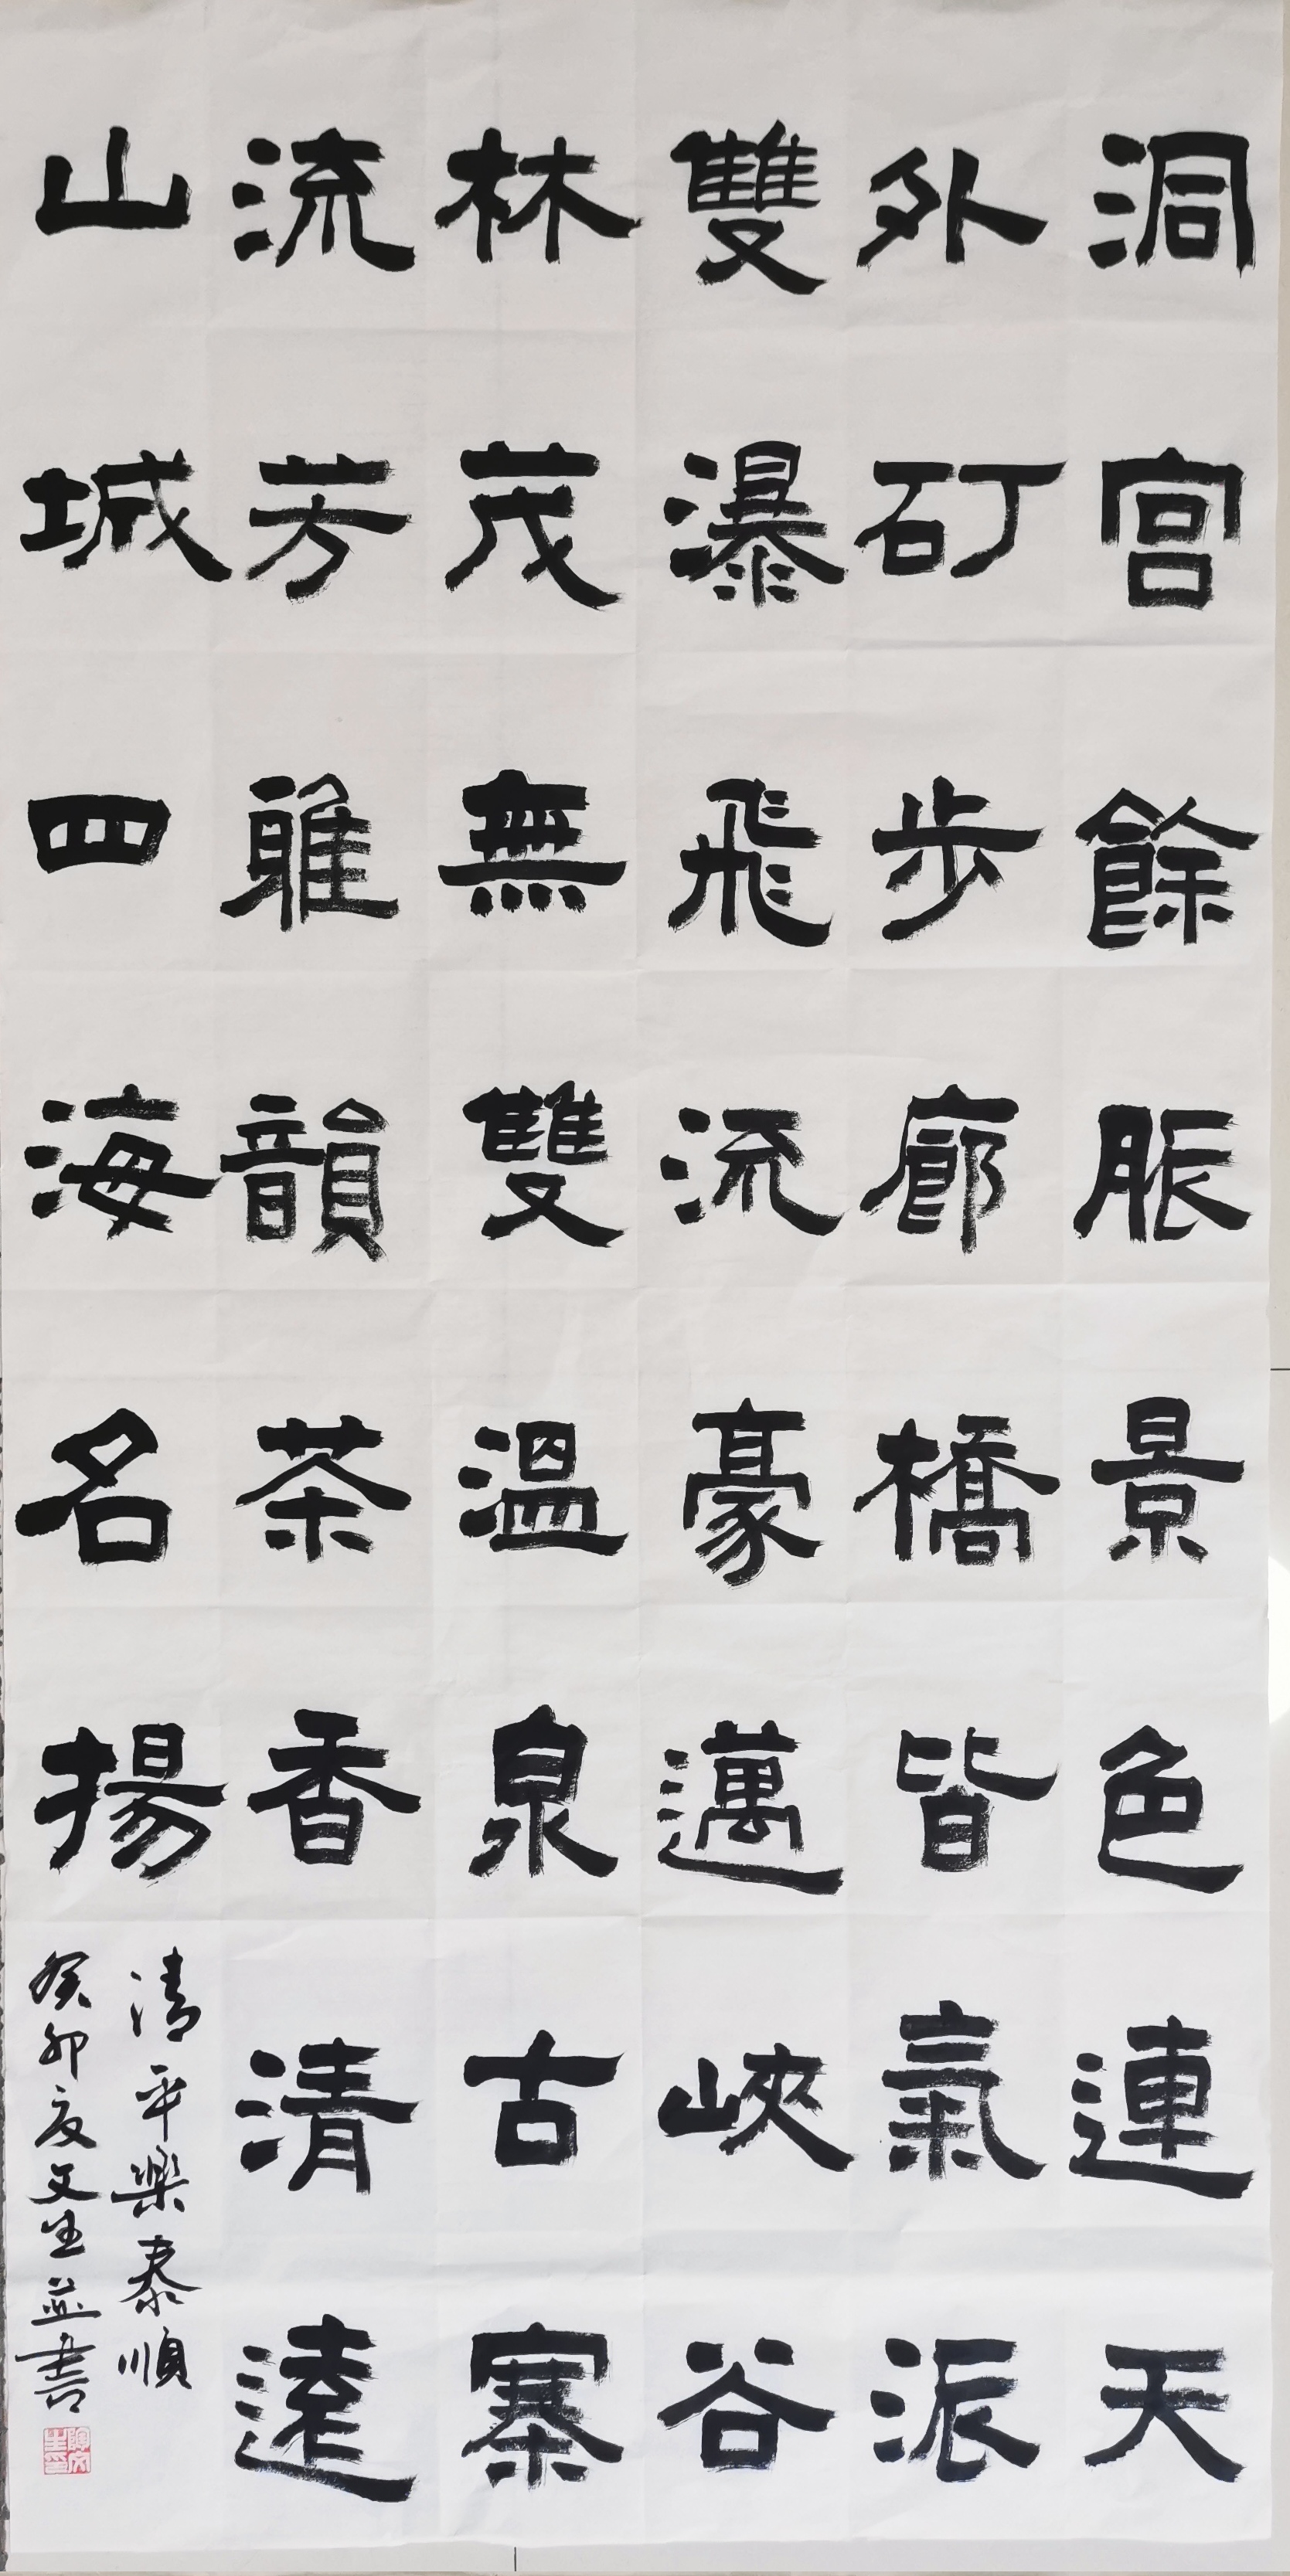 洞宫餘脈景色連天
外矴步廊橋皆氣派
雙瀑飛流豪邁峽谷
林茂無雙溫泉古寨
流芳雅韻茶香清遠
山城四海名揚
清平樂泰順
癸卯夏文生並書
陶文生印